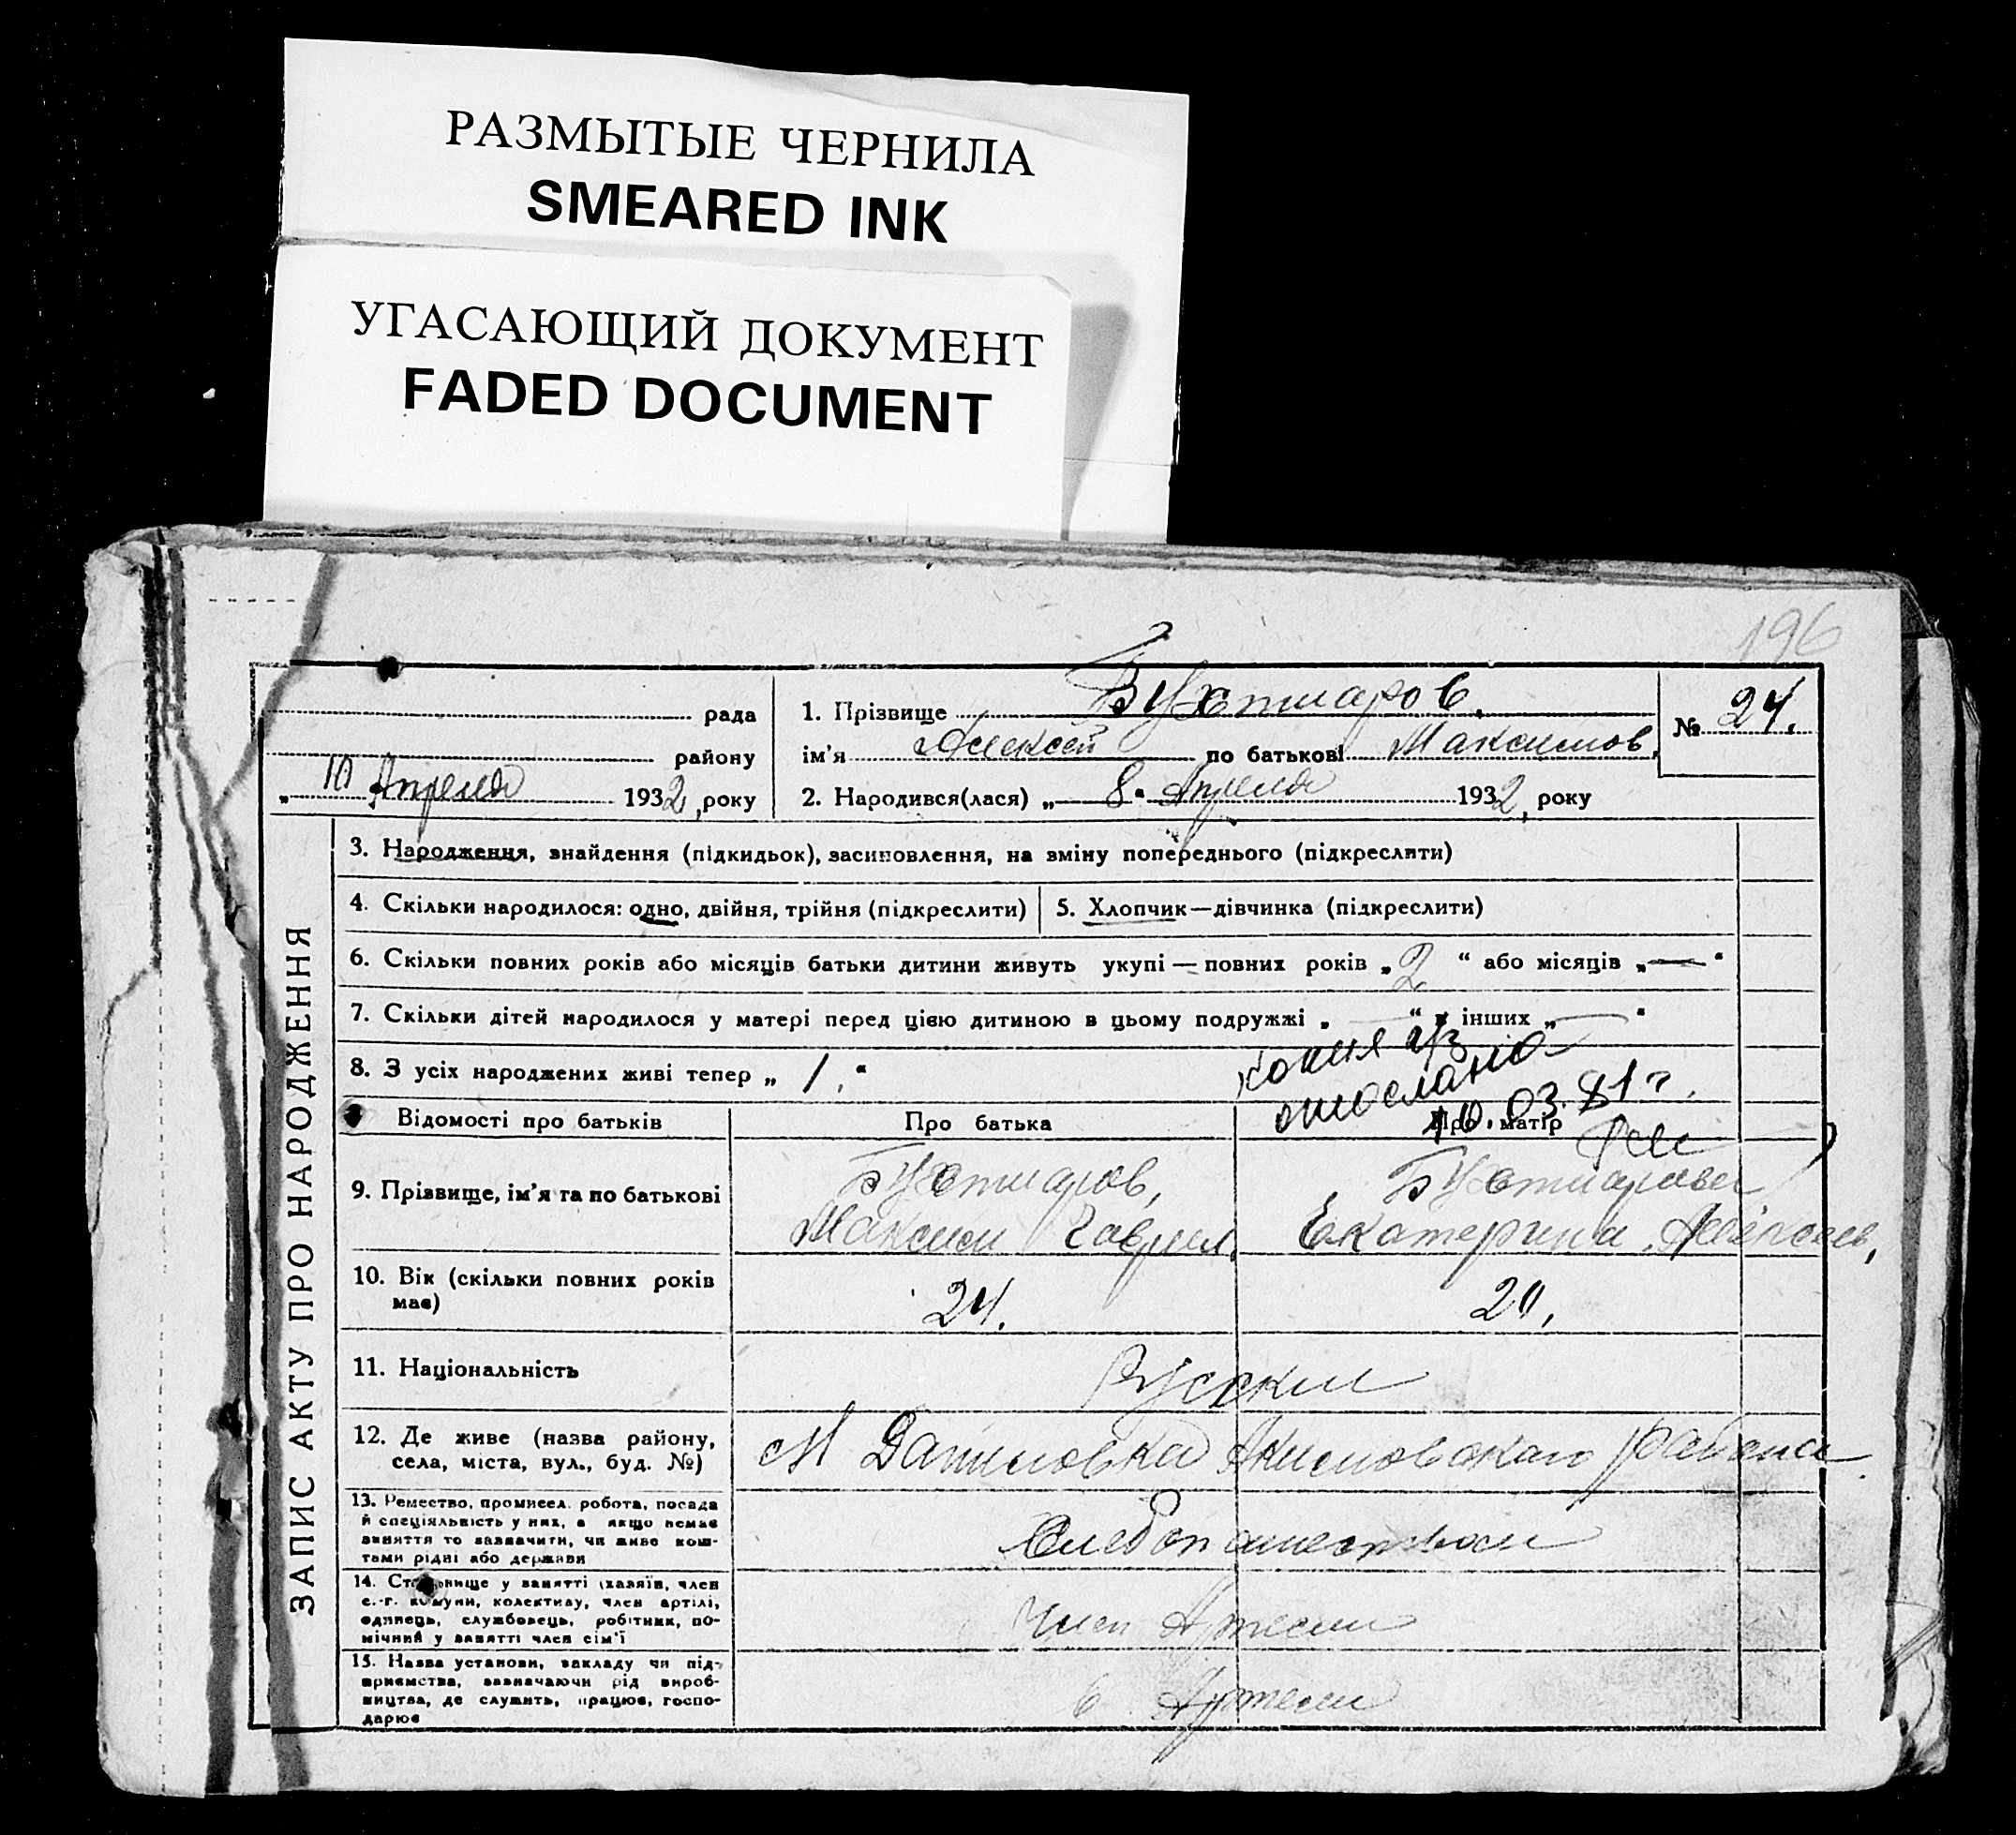 РАЗМЫТЫЕ ЧЕРНИЛА
SMEARED INK
УГАСАЮЩИЙ ДОКУМЕНТ
FADED DOCUMENT
196
рада
району
„10 Апреля 1932 року
1. Прізвище Бухтиаров.
ім'я Алексей по батькові Максимов.
№ 24.
2. Народився(лася) „8" Апреля 1932 року
ЗАПИС АКТУ ПРО НАРОДЖЕННЯ
3. Народження, знайдення (підкидьок), засиновлення, на зміну попереднього (підкреслити)
4. Скільки народилося: одно, двійня, трійня (підкреслити)
5. Хлопчик—дівчинка (підкреслити)
6. Скільки повних років або місяців батьки дитини живуть укупі — повних років „2" або місяців „—"
7. Скільки дітей народилося у матері перед цією дитиною в цьому подружжі „—" в інших „—"
8. З усіх народжених живі тепер „1."
копия а/з
отослана
10.03.81 г.
Відомості про батьків
Про батька
Про матір
9. Прізвище, ім'я та по батькові
Бухтиаров,
Максим Гаврил.
Бухтиарова
Екатерина Алексеев,
10. Вік (скільки повних років
має)
24.
20.
11. Національність
Русские
12. Де живе (назва району,
села, міста, вул., буд. №)
М Даниловка Акимовского района
13. Ремество, промисел, робота, посада
й спеціяльність у них, а якщо немає
заняття то зазначити, чи живе кош-
тами рідні або держави
Хлебопашеством
14. Становище у занятті (хазяїн, член
с.-г. комуни, колективу, член артілі,
одинець, службовець, робітник, по-
мічний у занятті член сім'ї
Член Артели
15. Назва установи, закладу чи під-
приємства, зазначаючи рід вироб-
ництва, де служить, працює, госпо-
дарює
В Артели